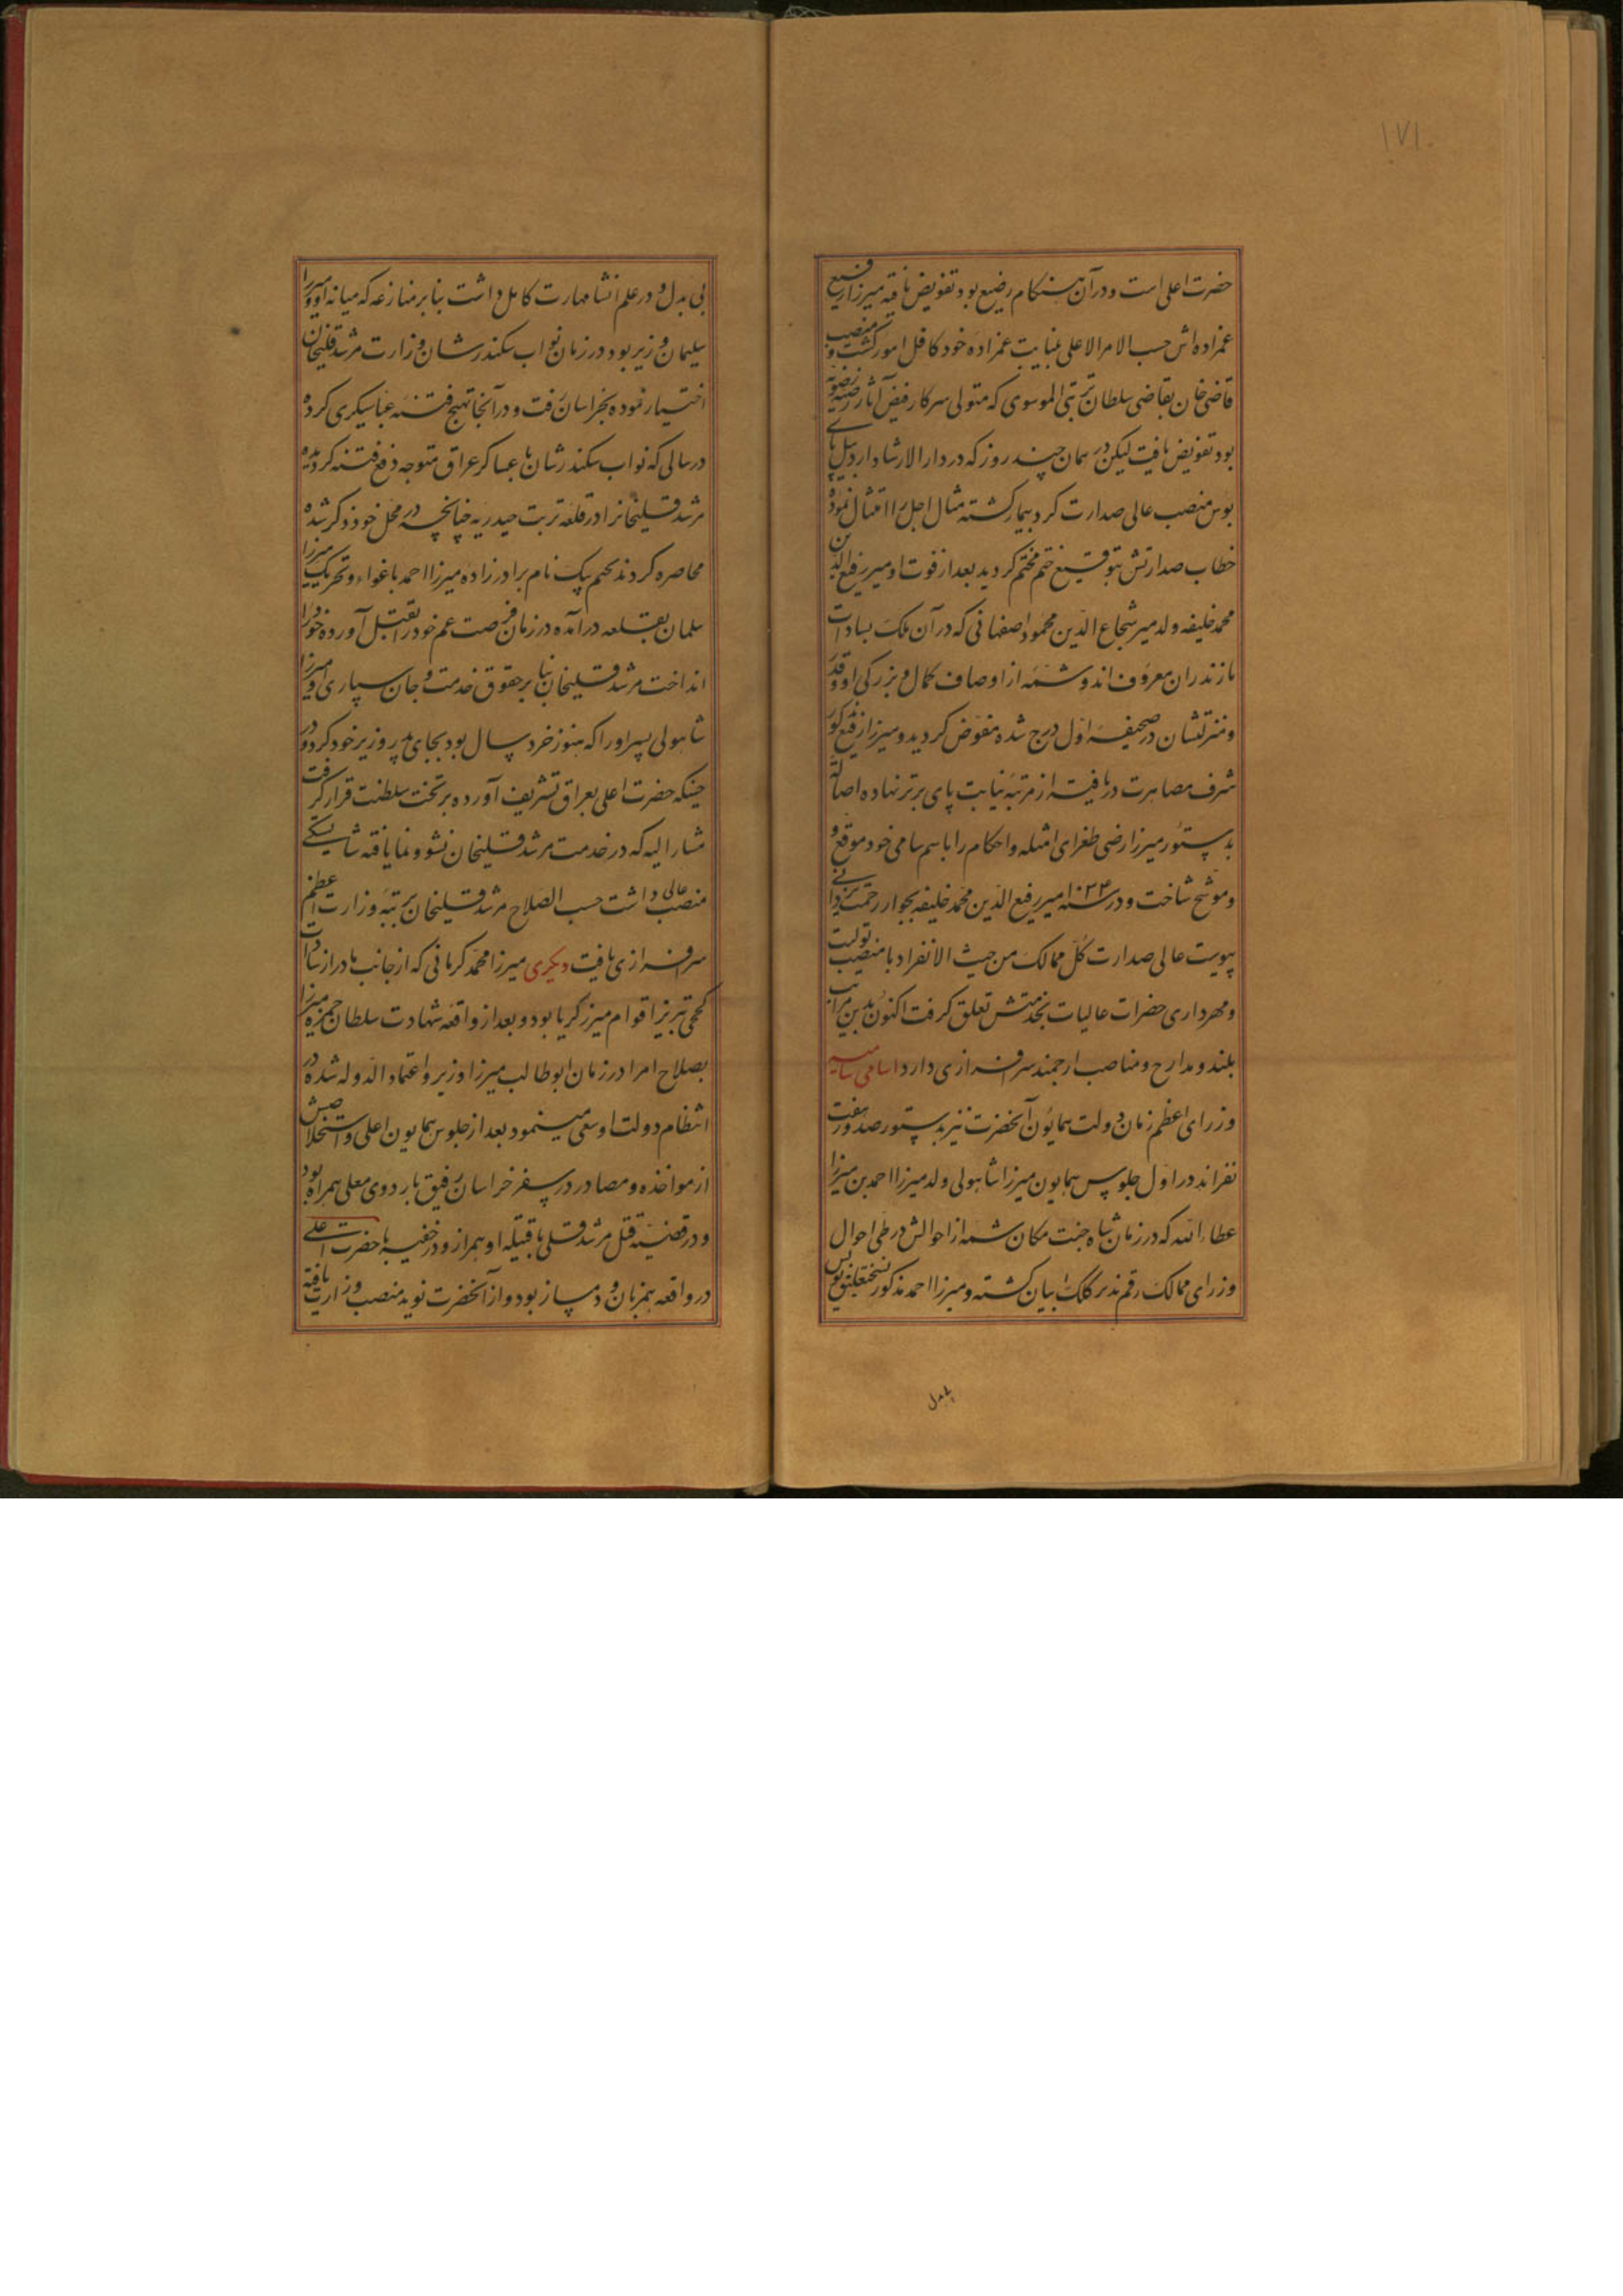 ۱۷۱
حضرت اعلی است و در آن هنگام رضیع بود تفویض یافته میرزا رفیع
عمزاده‌اش حسب الامر الاعلی بنیابت عمزاده خود کافل امور گشت و منصب
قاضی خان بقاضی سلطان تربتی الموسوی که متولی سرکار فیض آثار رضیه رضویه
بود تفویض یافت لیکن در همان چند روز که در دار الارشاد اردبیل پای
بوس منصب عالی صدارت کرد بیمار گشته مثال اجل را امتثال نمود
خطاب صدارتش بتوقیع ختم مختم گردید بعد از فوت او میر رفیع الدین
محمد خلیفه ولد میر شجاع الدین محمود اصفهانی که در آن ملک بسادات
مازندران معروف‌اند و شمه از اوصاف کمال و بزرگی او و قدر
و منزلتشان در صحیفه اول درج شده مفوض گردید و میرزا رفیع مذکور
شرف مصاهرت دریافته از مرتبه نیابت پای برتر نهاده اصالة
بدستور میرزا رضی طغرای امثله و احکام را باسم سامی خود موقع و
و موشح ساخت و در سنه ۱۰۳۴ میر رفیع الدین محمد خلیفه بجوار رحمت یزدانی
پیوست عالی صدارت کل ممالک من حیث الانفراد با منصب تولیت
و مهرداری حضرات عالیات بخدمتش تعلق گرفت اکنون بدین مراتب
بلند و مدارج و مناصب ارجمند سرافرازی دارد اسامی سامیه
وزرای اعظم زمان دولت همایون آنحضرت نیز بدستور صدور هفت
نفراند در اول جلوس همایون میرزا شاهولی ولد میرزا احمد بن میرزا
عطاء الله که در زمان شاه جنت مکان شمه از احوالش در طی احوال
وزرای ممالک رقم پذیر کلک بیان گشته و میرزا احمد مذکور نسختعلیق نویس
بی بدل
بی بدل و در علم انشا مهارت کامل داشت بنابر منازعه که میانه او و میرزا
سلیمان وزیر بود در زمان نواب سکندر شان وزارت مرشد قلیخان
اختیار نموده بخراسان رفت و در آنجا تهیج فتنه عباسیکری کرده
در سالی که نواب سکندر شان با عساکر عراق متوجه دفع فتنه گردیده
مرشد قلیخانرا در قلعه تربت حیدریه چنانچه در محل خود ذکر شده
محاصره کردند بحکم بیک نام برادر زاده میرزا احمد باغواء و تحریک میرزا
سلمان بقلعه درآمده در زمان فرصت عم خود را بقتل آورده خود را
انداخت مرشد قلیخان بنا بر حقوق خدمت و جان سپاری او میرزا
شاهولی پسر او را که هنوز خرد سال بود بجای پدر وزیر خود کرد و در
حینیکه حضرت اعلی بعراق تشریف آورده بر تخت سلطنت قرار گرفت
مشار الیه که در خدمت مرشد قلیخان نشو و نما یافته شایستگی
منصب عالی داشت حسب الصلاح مرشد قلیخان برتبه وزارت اعظم
سرافرازی یافت دیگری میرزا محمد کرمانی که از جانب مادر از سادات
کججی تبریز اقوام میرزکریا بود و بعد از واقعه شهادت سلطان حمزه میرزا
بصلاح امرا در زمان ابو طالب میرزا وزیر و اعتماد الدوله شده در
انتظام دولت او سعی مینمود بعد از جلوس همایون اعلی و استخلاصش
از مواخذه و مصادر در سفر خراسان رفیق باردوی معلی همراه بود
و در قضیه قتل مرشد قلی با قبیله او همراز و در خفیه با حضرت اعلی
در واقعه همزبان و دمساز بود و از آنحضرت نوید منصب وزارت یافته